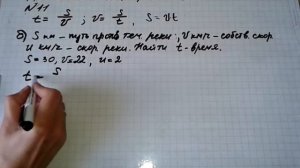 N 11
t = S/V ; V = S/t , S = Vt
б) S км – путь против теч. реки ; V км/ч – собств. скор.
и км/ч – скор. реки. Найти t - время.
S = 30, V = 22, u = 2
t = S